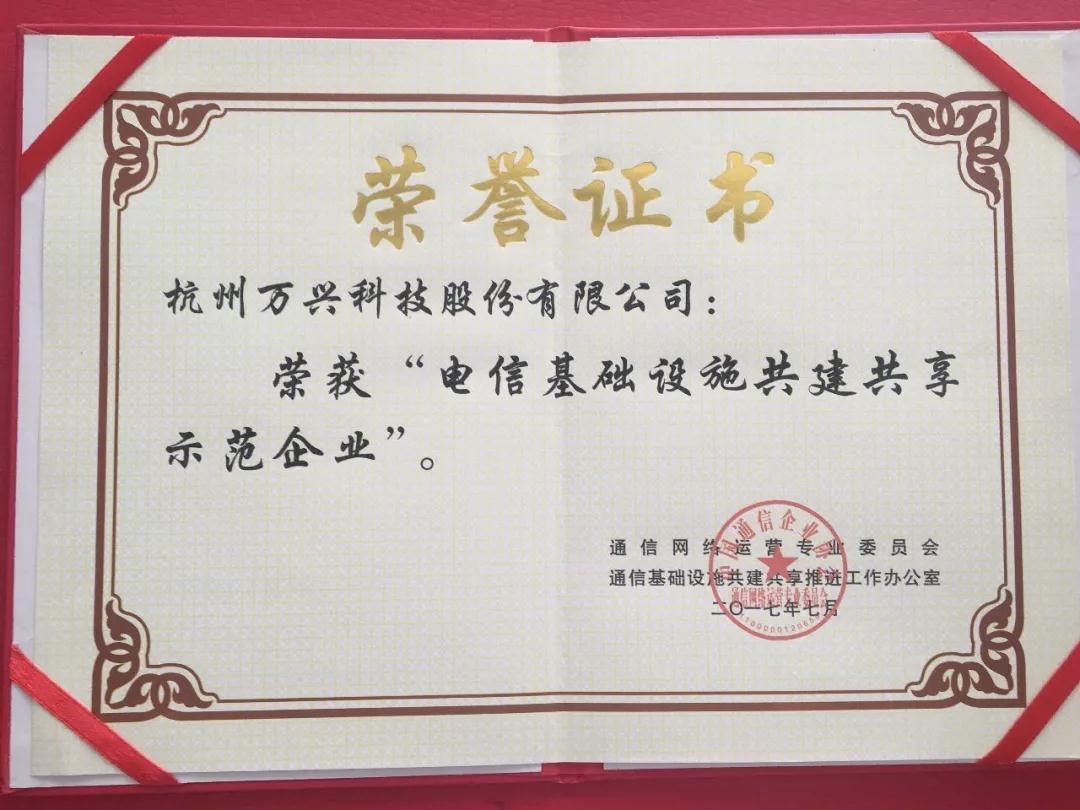 荣誉证书
杭州万兴科技股份有限公司：
荣获“电信基础设施共建共享
示范企业”。
通信网络运营专业委员会
通信基础设施共建共享推进工作办公室
二〇一七年七月
中国通信企业协会
通信网络运营专业委员会